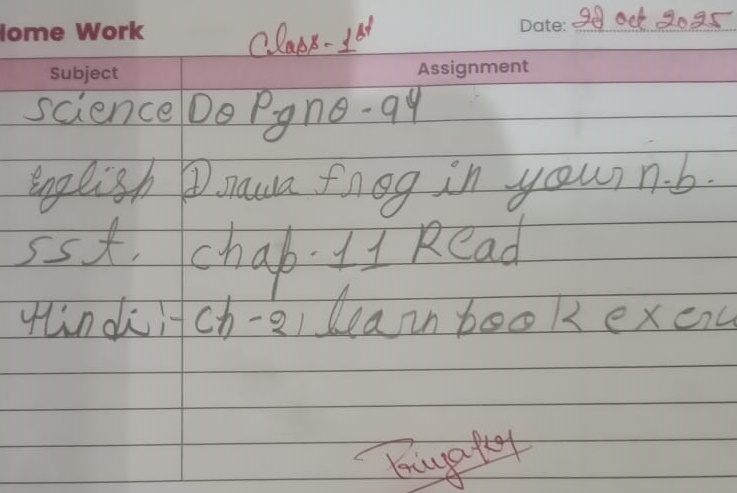 Home Work
Class-1st
Date: 28 oct 2025
Subject Assignment
Science Do Pgno-94
English Draw a frog in your n.b.
SSt. Chap-11 Read
Hindi:- Ch-2, learn book exerc